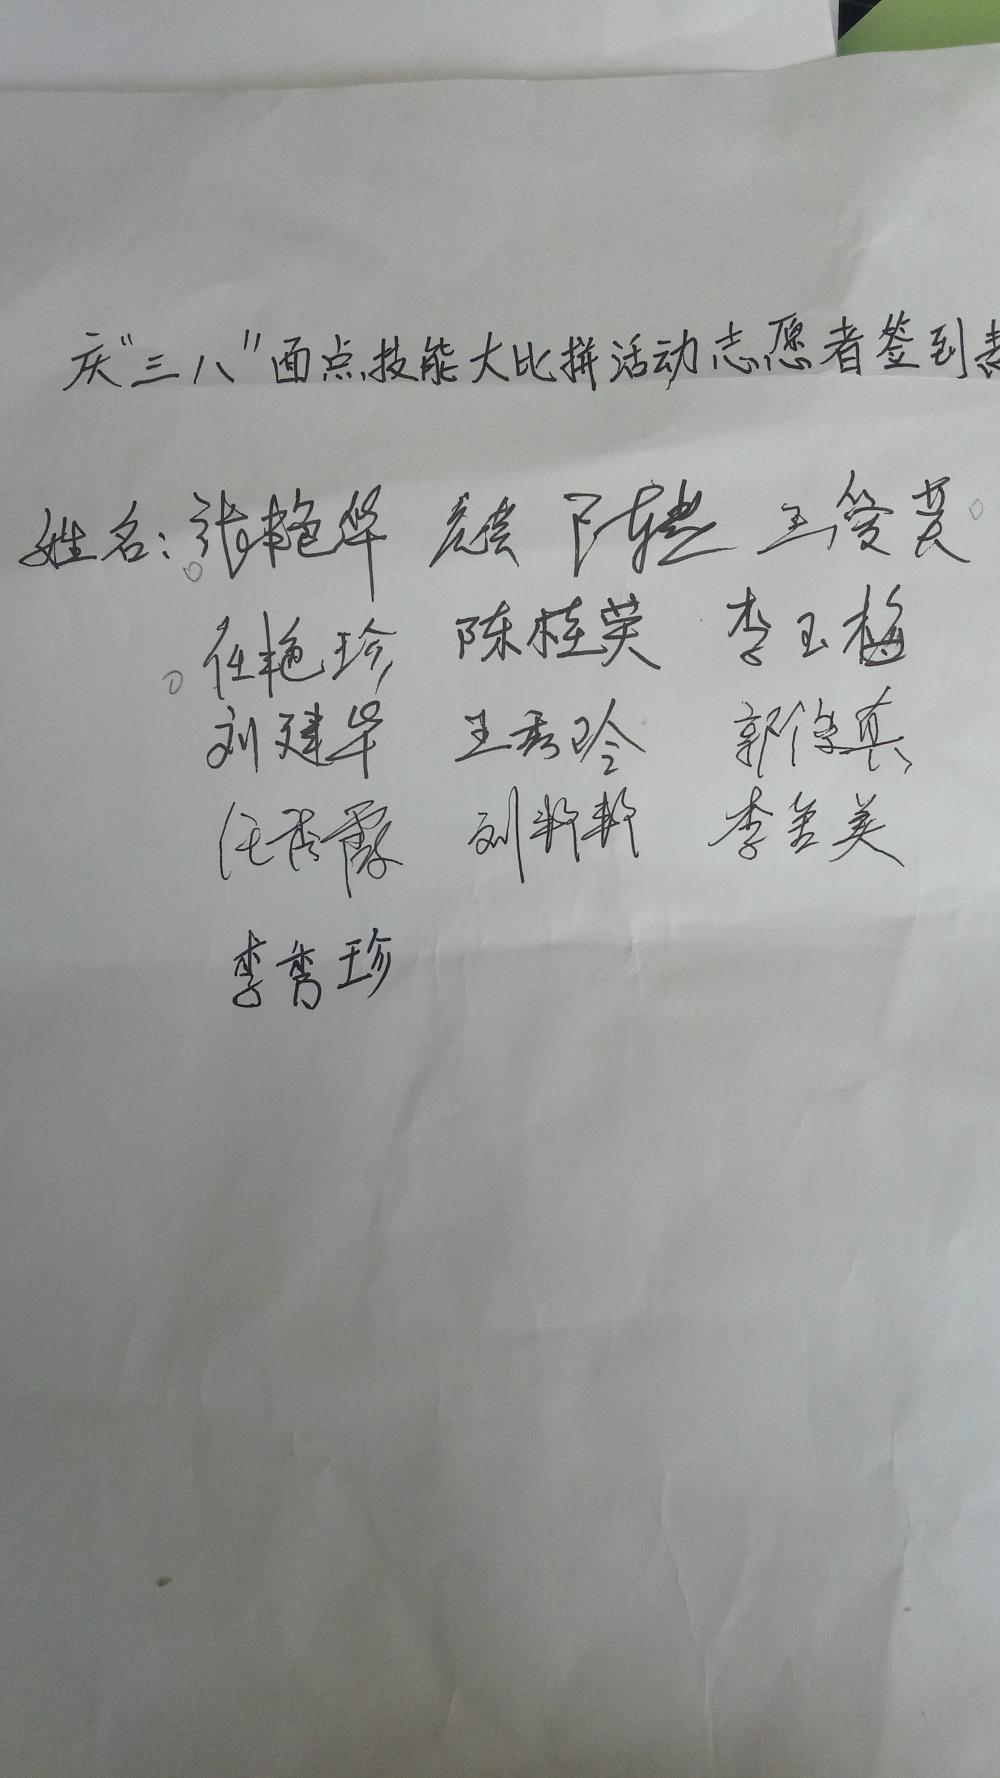 庆“三八”面点技能大比拼活动志愿者签到表
姓名：张艳华 陈 王爱英
任艳珍 陈桂英 李玉梅
刘建华 王秀玲 郭俊真
任秀霞 刘 李金美
李秀珍